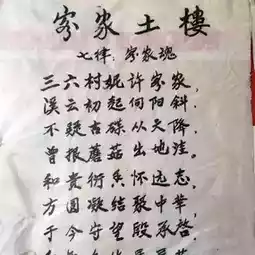 客家土楼
七律：客家魂
三六村妮许客家，
溪云初起伺阳斜．
不疑吉碟从天降，
曾报蘑菇出地洼．
和贵衍兵怀远志，
方圆凝结聚中华，
于今守望殷承啓．